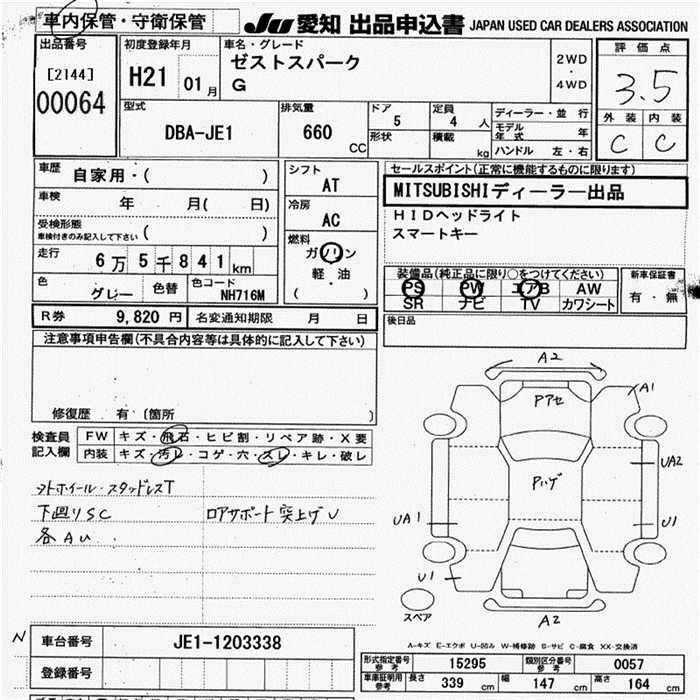 車内保管・守衛保管
JU 愛知 出品申込書 JAPAN USED CAR DEALERS ASSOCIATION
出品番号
[2144]
00064
初度登録年月
H21 01 月
車名・グレード
ゼストスパーク
G
2WD
・
4WD
評価点
3.5
外装 内装
C C
型式
DBA-JE1
排気量
660 CC
ドア 5
形状
定員 4 人
積載 kg
ディーラー・並行
モデル年式 年
ハンドル 左・右
車歴 自家用・( )
車検 年 月( 日)
受検形態
車検付きのみ記入して下さい ( )
走行 6万5千841km
色 グレー
色替
色コード NH716M
シフト AT
冷房 AC
燃料
ガソリン
軽・油
( )
セールスポイント(正常に機能するものに限ります)
MITSUBISHIディーラー出品
HIDヘッドライト
スマートキー
装備品(純正品に限り○をつけてください)
PS PW エアB AW
SR ナビ TV カワシート
新車保証書
有・無
後日品
R券 9,820 円 名変通知期限 月 日
注意事項申告欄(不具合内容等は具体的に記入して下さい)
修復歴 有(箇所 )
検査員記入欄
FW キズ・飛石・ヒビ割・リペア跡・X要
内装 キズ・汚レ・コゲ・穴・スレ・キレ・破レ
ホイール・スタッドレスT
下廻りSC ロアサポート突上げU
各AU
A2
Pアセ
A1
Pハゲ
UA2
UA1
U1
U1
スペア
A2
A-キズ E-エクボ U-凹み W-補修跡 S-サビ C-腐食 XX-交換済
N 車台番号 JE1-1203338
登録番号
形式指定番号参考 15295 類別区分番号参考 0057
車庫証明用参考 長さ 339 cm 幅 147 cm 高さ 164 cm